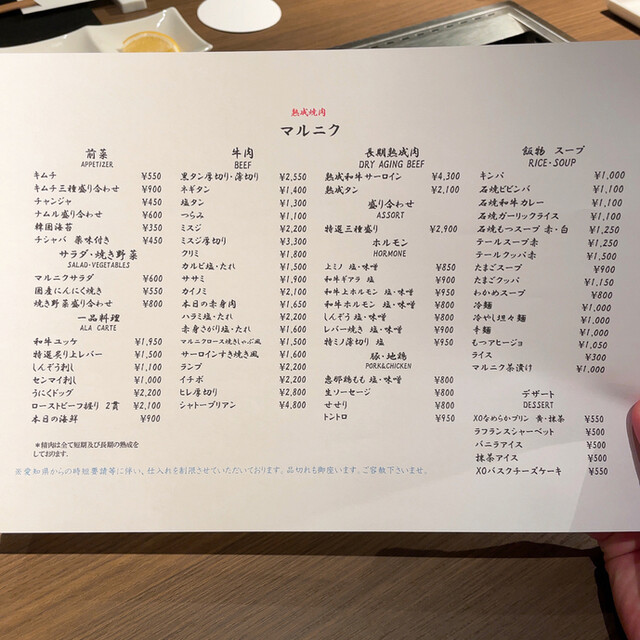 熟成焼肉
マルニク
前菜
APPETIZER
キムチ ¥550
キムチ三種盛り合わせ ¥900
チャンジャ ¥450
ナムル盛り合わせ ¥600
韓国海苔 ¥350
チシャバ 薬味付き ¥450
サラダ・焼き野菜
SALAD・VEGETABLES
マルニクサラダ ¥600
国産にんにく焼き ¥550
焼き野菜盛り合わせ ¥800
一品料理
ALA CARTE
和牛ユッケ ¥1,950
特選炙り上レバー ¥1,500
しんぞう刺し ¥1,100
センマイ刺し ¥1,000
うにくドッグ ¥2,200
ローストビーフ握り 2貫 ¥2,100
本日の海鮮 ¥900
*精肉は全て短期及び長期の熟成を
しております。
牛肉
BEEF
黒タン厚切り・薄切り ¥2,550
ネギタン ¥1,400
塩タン ¥1,300
つらみ ¥1,100
ミスジ ¥2,200
ミスジ厚切り ¥3,300
クリミ ¥1,800
カルビ塩・たれ ¥1,500
ササミ ¥1,900
カイノミ ¥2,100
本日の赤身肉 ¥1,650
ハラミ塩・たれ ¥2,100
赤身さがり塩・たれ ¥1,600
マルニクロース焼きしゃぶ風 ¥1,500
サーロインすき焼き風 ¥1,600
ランプ ¥2,200
イチボ ¥2,200
ヒレ厚切り ¥2,800
シャトーブリアン ¥4,800
長期熟成肉
DRY AGING BEEF
熟成和牛サーロイン ¥4,300
熟成タン ¥2,100
盛り合わせ
ASSORT
特選三種盛り ¥2,900
ホルモン
HORMONE
上ミノ 塩・味噌 ¥850
和牛ギアラ 塩 ¥900
和牛上ホルモン 塩・味噌 ¥950
和牛ホルモン 塩・味噌 ¥900
しんぞう 塩・味噌 ¥800
レバー焼き 塩・味噌 ¥900
特ミノ薄切り 塩 ¥950
豚・地鶏
PORK&CHICKEN
恵那鶏もも 塩・味噌 ¥800
生ソーセージ ¥800
せせり ¥800
トントロ ¥950
飯物 スープ
RICE・SOUP
キンパ ¥1,000
石焼ビビンバ ¥1,100
石焼和牛カレー ¥1,100
石焼ガーリックライス ¥1,100
石焼もつスープ 赤・白 ¥1,250
テールスープ赤 ¥1,250
テールクッパ赤 ¥1,500
たまごスープ ¥900
たまごクッパ ¥1,150
わかめスープ ¥800
冷麺 ¥1,000
冷やし坦々麺 ¥1,000
辛麺 ¥1,000
もつアヒージョ ¥1,050
ライス ¥300
マルニク茶漬け ¥1,000
デザート
DESSERT
XOなめらかプリン 黄・抹茶 ¥550
ラフランスシャーベット ¥500
バニラアイス ¥500
抹茶アイス ¥500
XOバスクチーズケーキ ¥550
※愛知県からの時短要請等に伴い、仕入れを制限させていただいております。品切れも御座います。ご容赦下さいませ。